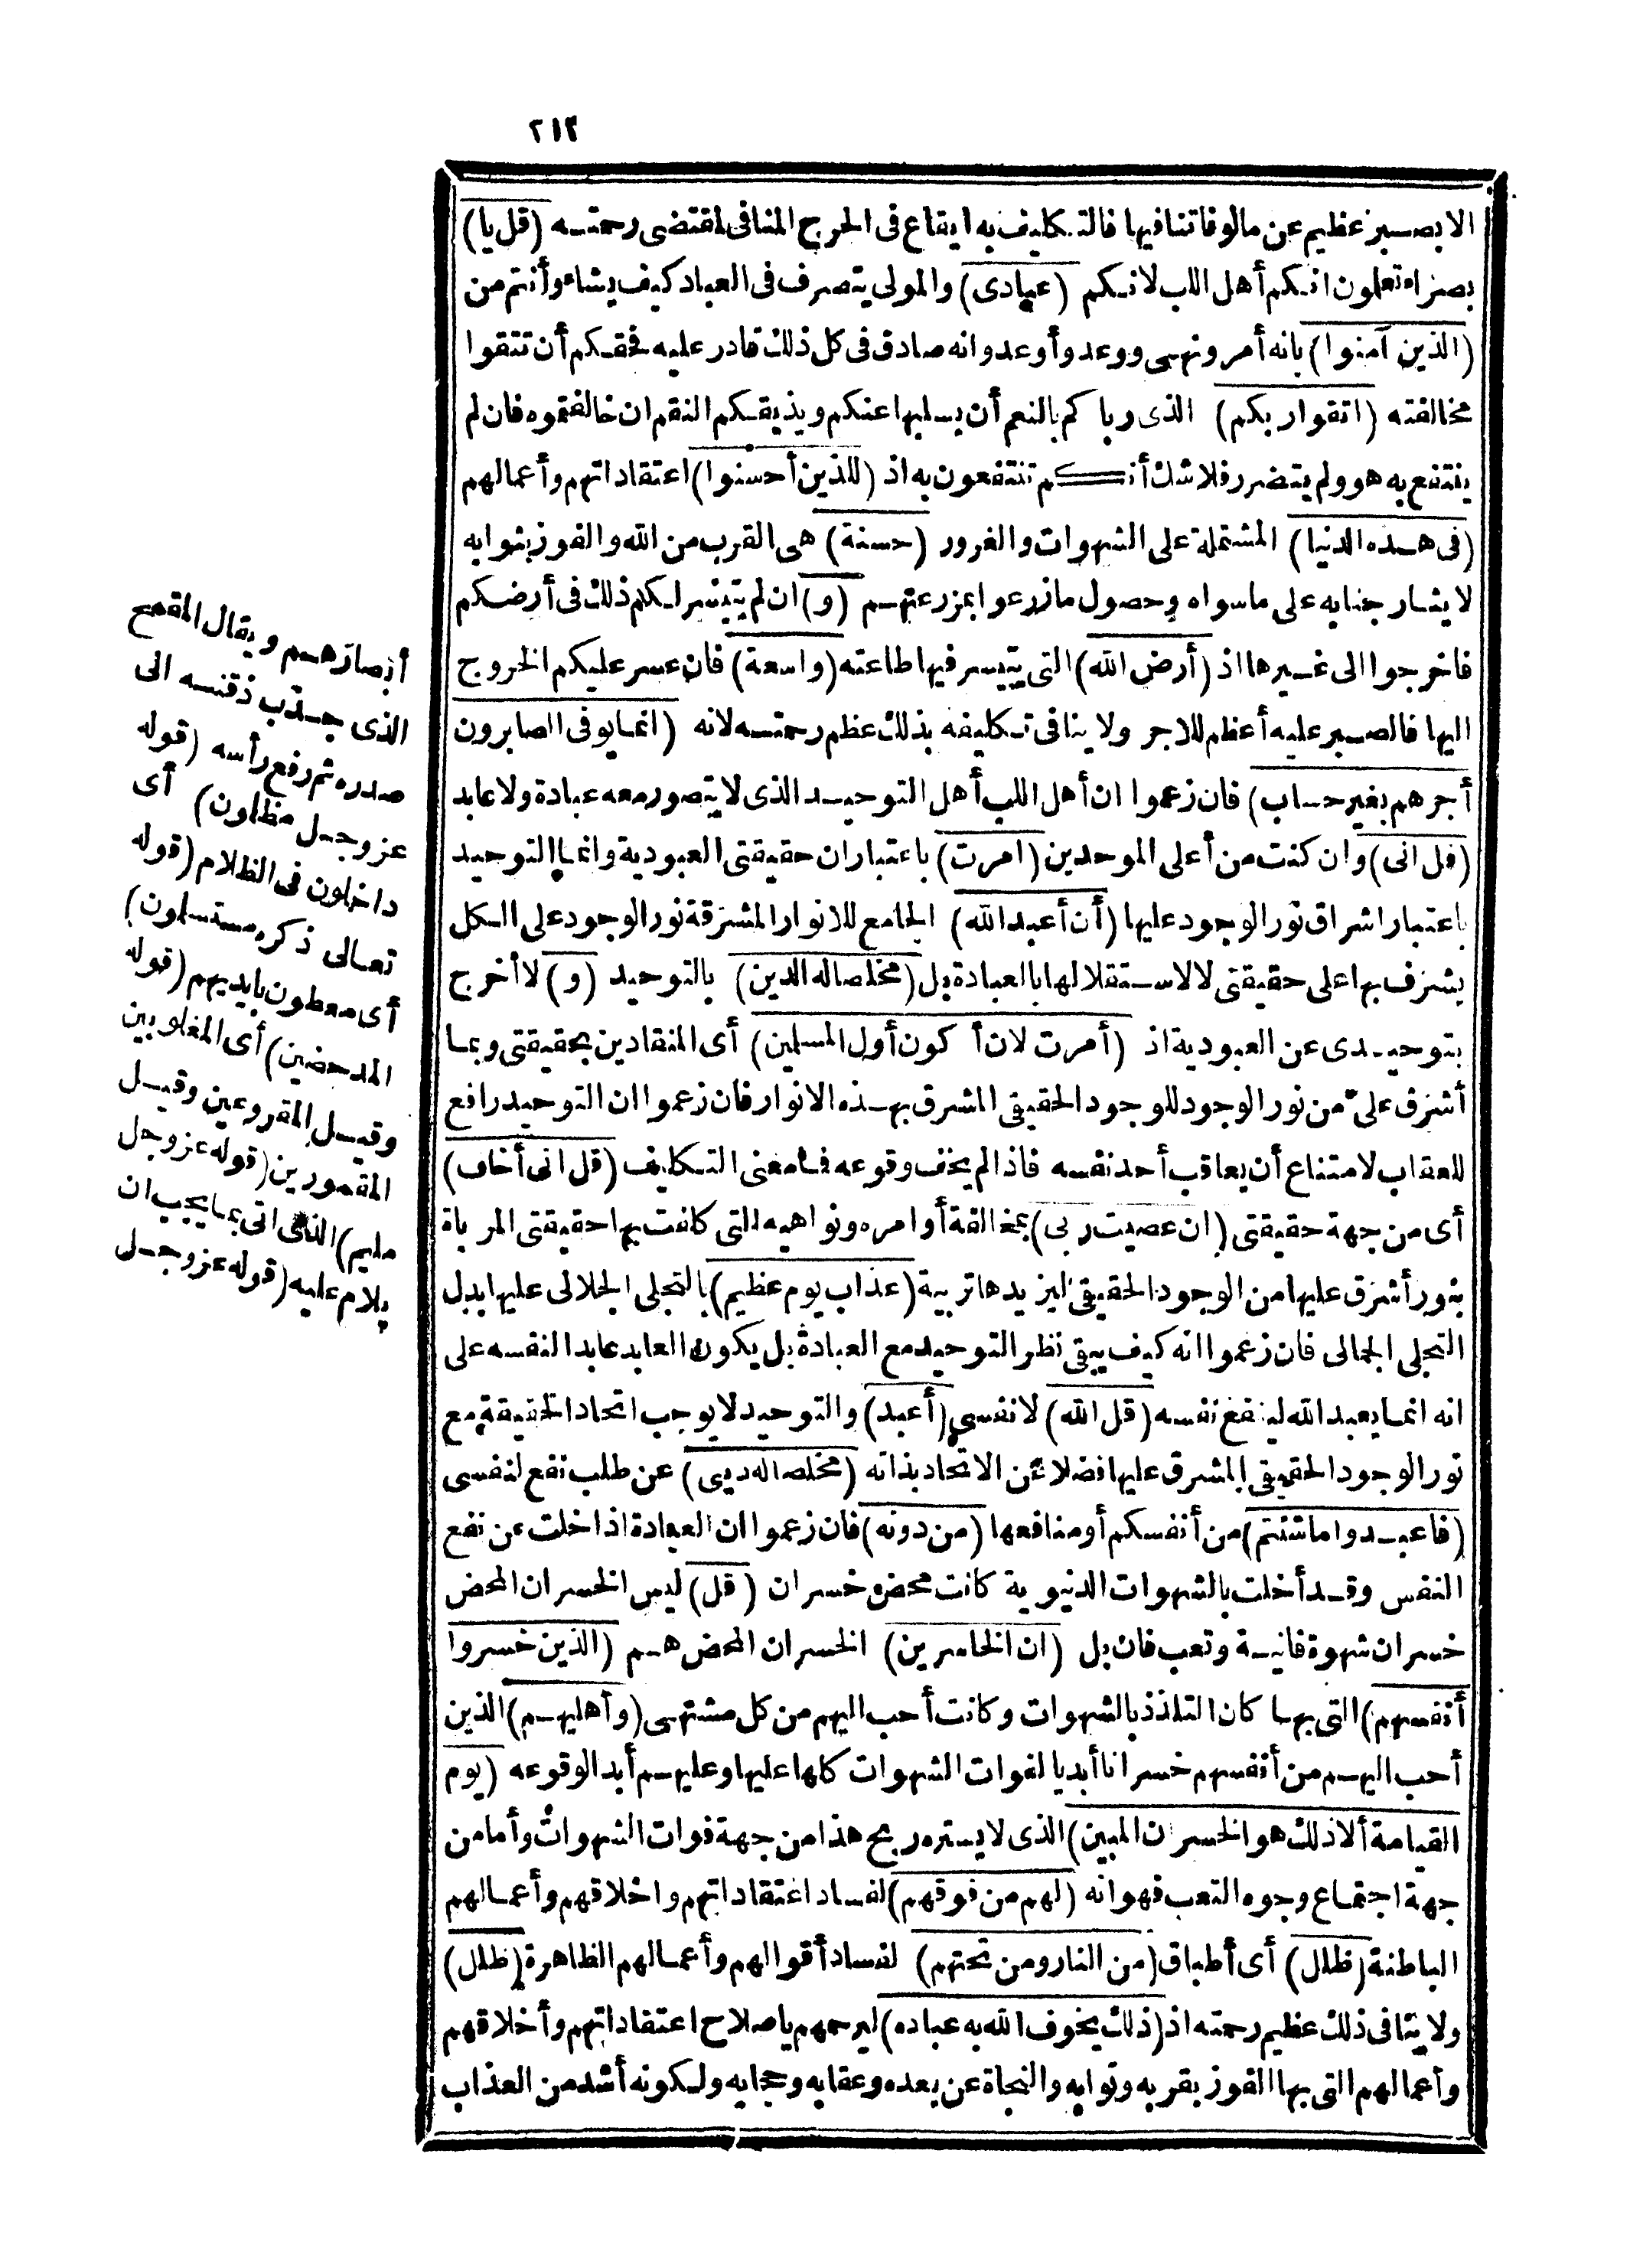 ٢١٢
الا بصبر عظيم عن مالوفاتنا فيها فالتكليف به ايقاع فى الحرج المنافى لمقتضى رحمته (قل يا)
بصراء تعلمون انكم أهل اللب لانكم (عبادى) والمولى يتصرف فى العباد كيف يشاء وأنتم من
(الذين آمنوا) بانه أمر ونهى ووعد وأوعد وانه صادق فى كل ذلك قادر عليه فحقكم أن تتقوا
مخالفته (اتقوا ربكم) الذى رباكم بالنعم أن يسلبها عنكم ويذيقكم النقم ان خالفتموه فان لم
ينتفع به هو ولم يتضرر فلا شك أنكم تنتفعون به اذ (للذين أحسنوا) اعتقاداتهم وأعمالهم
(فى هذه الدنيا) المشتملة على الشهوات والغرور (حسنة) هى القرب من الله والفوز بثوابه
لايثار جنابه على ماسواه وحصول مازرعوا بمزرعتهم (و) ان لم يتيسر لكم ذلك فى أرضكم
فاخرجوا الى غيرها اذ (أرض الله) التى يتيسر فيها طاعته (واسعة) فان عسر عليكم الخروج
اليها فالصبر عليه أعظم للاجر ولا ينافى تكليفه بذلك عظم رحمته لانه (انما يوفى الصابرون
أجرهم بغير حساب) فان زعموا ان أهل اللب أهل التوحيد الذى لا يتصور معه عبادة ولا عابد
(قل انى) وان كنت من أعلى الموحدين (امرت) باعتبار ان حقيقتى العبودية وانما التوحيد
باعتبار اشراق نور الوجود عليها (أن أعبد الله) الجامع للانوار المشرقة نور الوجود على الكل
يشرف بها على حقيقتى لا لاستقلالها بالعبادة بل (مخلصا له الدين) بالتوحيد (و) لا أخرج
بتوحيدى عن العبودية اذ (أمرت لان أكون أول المسلمين) أى المنقادين بحقيقتى وبما
أشرق علىّ من نور الوجود للوجود الحقيقى المشرق بهذه الانوار فان زعموا ان التوحيد رافع
للعقاب لامتناع أن يعاقب أحد نفسه فاذا لم يخف وقوعه فما معنى التكليف (قل انى أخاف)
أى من جهة حقيقتى (ان عصيت ربى) بمخالفة أوامره ونواهيه التى كلفت بها حقيقتى المرباة
بنور أشرق عليها من الوجود الحقيقى ليزيدها تربية (عذاب يوم عظيم) بالتجلى الجلالى عليها بدل
التجلى الجمالى فان زعموا انه كيف يبقى نظر التوحيد مع العبادة بل يكون العابد عابدا لنفسه على
انه انما يعبد الله لينفع نفسه (قل الله) لا نفسى (أعبد) والتوحيد لا يوجب اتحاد الحقيقة مع
نور الوجود الحقيقى المشرق عليها فضلا عن الاتحاد بذاته (مخلصا له دينى) عن طلب نفع لنفسى
(فاعبدوا ماشئتم) من أنفسكم أو منافعها (من دونه) فان زعموا ان العبادة اذا خلت عن نفع
النفس وقد أخلت بالشهوات الدنيوية كانت محض خسران (قل) ليس الخسران المحض
خسران شهوة فانية وتعب فان بل (ان الخاسرين) الخسران المحض هم (الذين خسروا
أنفسهم) التى بها كان التلذذ بالشهوات وكانت أحب اليهم من كل مشتهى (وأهليهم) الذين
أحب اليهم من أنفسهم خسرانا أبديا لفوات الشهوات كلها عليها وعليهم أبدا لوقوعه (يوم
القيامة ألا ذلك هو الخسران المبين) الذى لا يستره ربح هذا من جهة فوات الشهوات وأما من
جهة اجتماع وجوه التعب فهو انه (لهم من فوقهم) لفساد اعتقاداتهم واخلاقهم وأعمالهم
الباطنة (ظلل) أى أطباق (من النار ومن تحتهم) لفساد أقوالهم وأعمالهم الظاهرة (ظلل)
ولا ينافى ذلك عظيم رحمته اذ (ذلك يخوف الله به عباده) ليرحمهم باصلاح اعتقاداتهم وأخلاقهم
وأعمالهم التى بها الفوز بقربه وثوابه والنجاة عن بعده وعقابه وحجابه ولكونه أشد من العذاب
أبصارهم ويقال المقمح
الذى جذب ذقنه الى
صدره ثم رفع رأسه (قوله
عز وجل مظلمون) أى
داخلون فى الظلام (قوله
تعالى ذكره مستسلمون)
أى معطون بايديهم (قوله
المدحضين) أى المغلوبين
وقيل المقروعين وقيل
المقمورين (قوله عز وجل
مليم) الذى اتى بما يجب ان
يلام عليه (قوله عز وجل